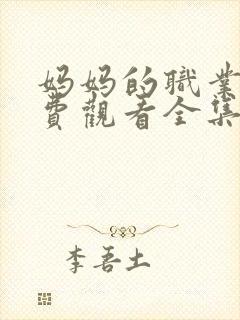 妈妈的職業
費觀看全集
李吾土